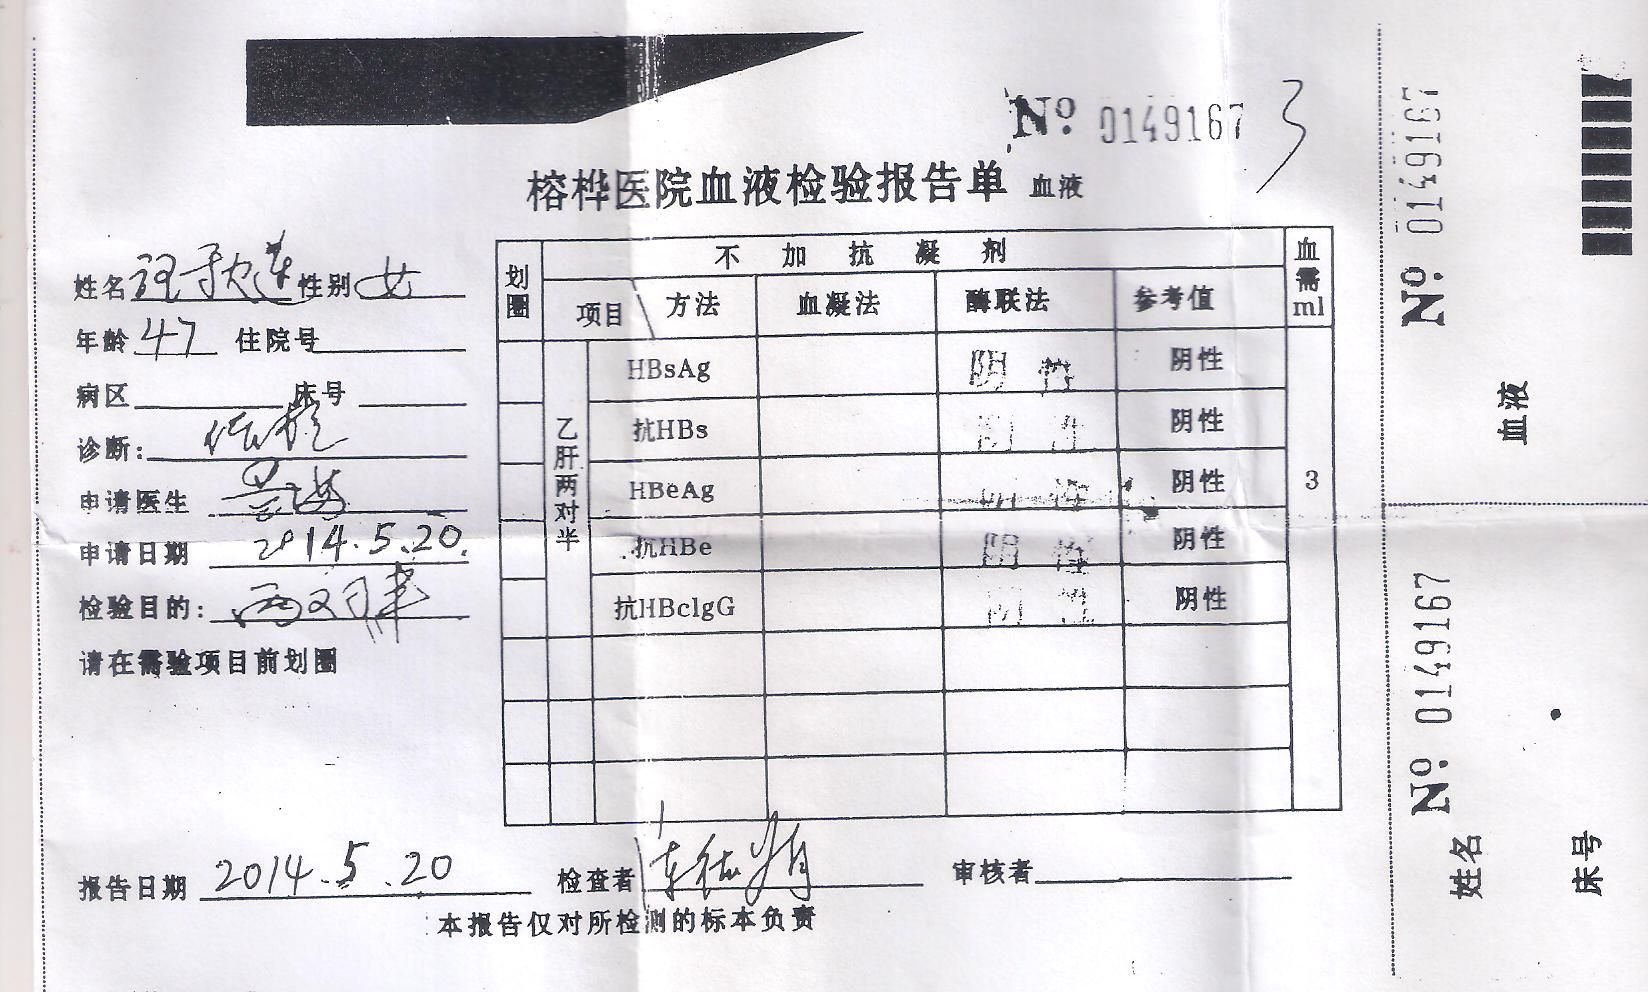 № 0149167 3
榕桦医院血液检验报告单 血液
姓名 性别 女
年龄 47 住院号
病区 床号
诊断: 体检
申请医生
申请日期 2014.5.20.
检验目的: 两对半
请在需验项目前划圈
划圈 不加抗凝剂 血需ml
项目 方法 血凝法 酶联法 参考值
乙肝两对半 3
HBsAg 阴性 阴性
抗HBs 阴性 阴性
HBeAg 阴性 阴性
抗HBe 阴性 阴性
抗HBcIgG 阴性 阴性
报告日期 2014.5.20 检查者 审核者
本报告仅对所检测的标本负责
№ 0149167
血液
№ 0149167
姓名
床号